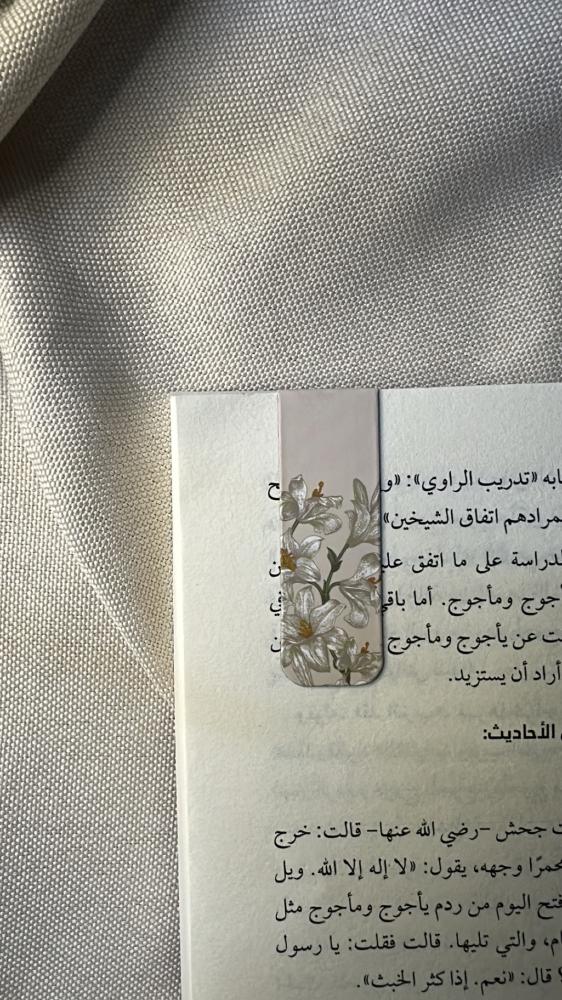 ابه «تدريب الراوي»: «و
مرادهم اتفاق الشيخين»
لدراسة على ما اتفق علي
جوج ومأجوج. أما باقي في
ت عن يأجوج ومأجوج
أراد أن يستزيد.
الأحاديث:
ت جحش –رضي الله عنها– قالت: خرج
حمرًا وجهه، يقول: «لا إله إلا الله. ويل
فتح اليوم من ردم يأجوج ومأجوج مثل
ام، والتي تليها. قالت فقلت: يا رسول
؟ قال: «نعم. إذا كثر الخبث».